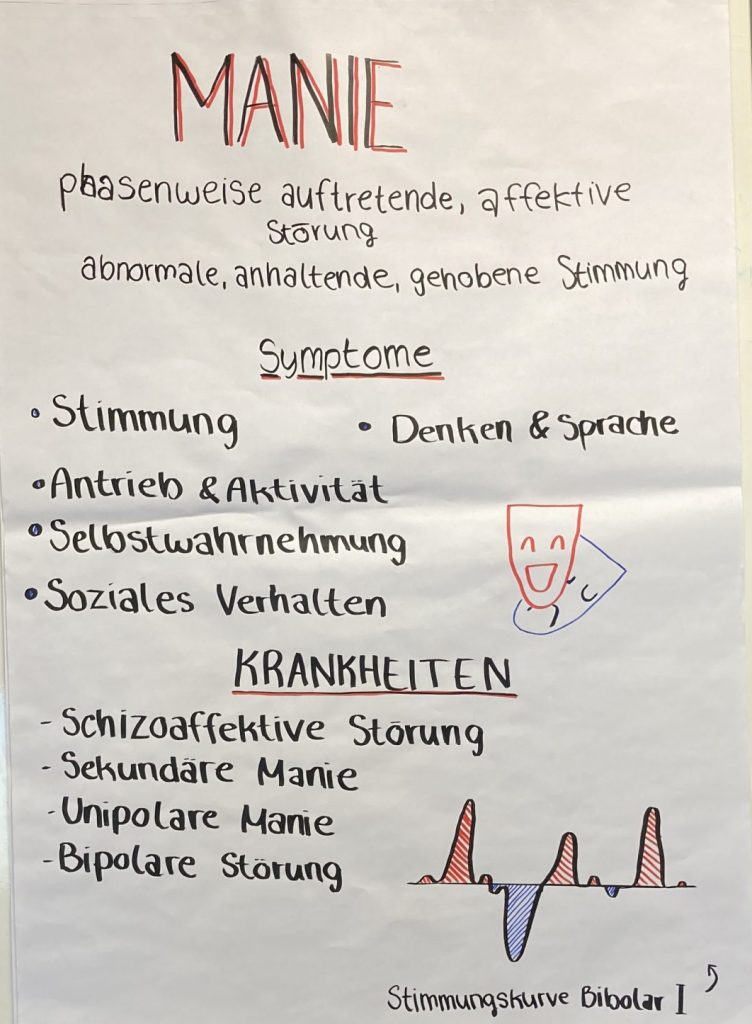 MANIE
phasenweise auftretende, affektive
Störung
abnormale, anhaltende, gehobene Stimmung
Symptome
• Stimmung
• Denken & Sprache
• Antrieb & Aktivität
• Selbstwahrnehmung
• Soziales Verhalten
KRANKHEITEN
- Schizoaffektive Störung
- Sekundäre Manie
- Unipolare Manie
- Bipolare Störung
Stimmungskurve Bibolar I